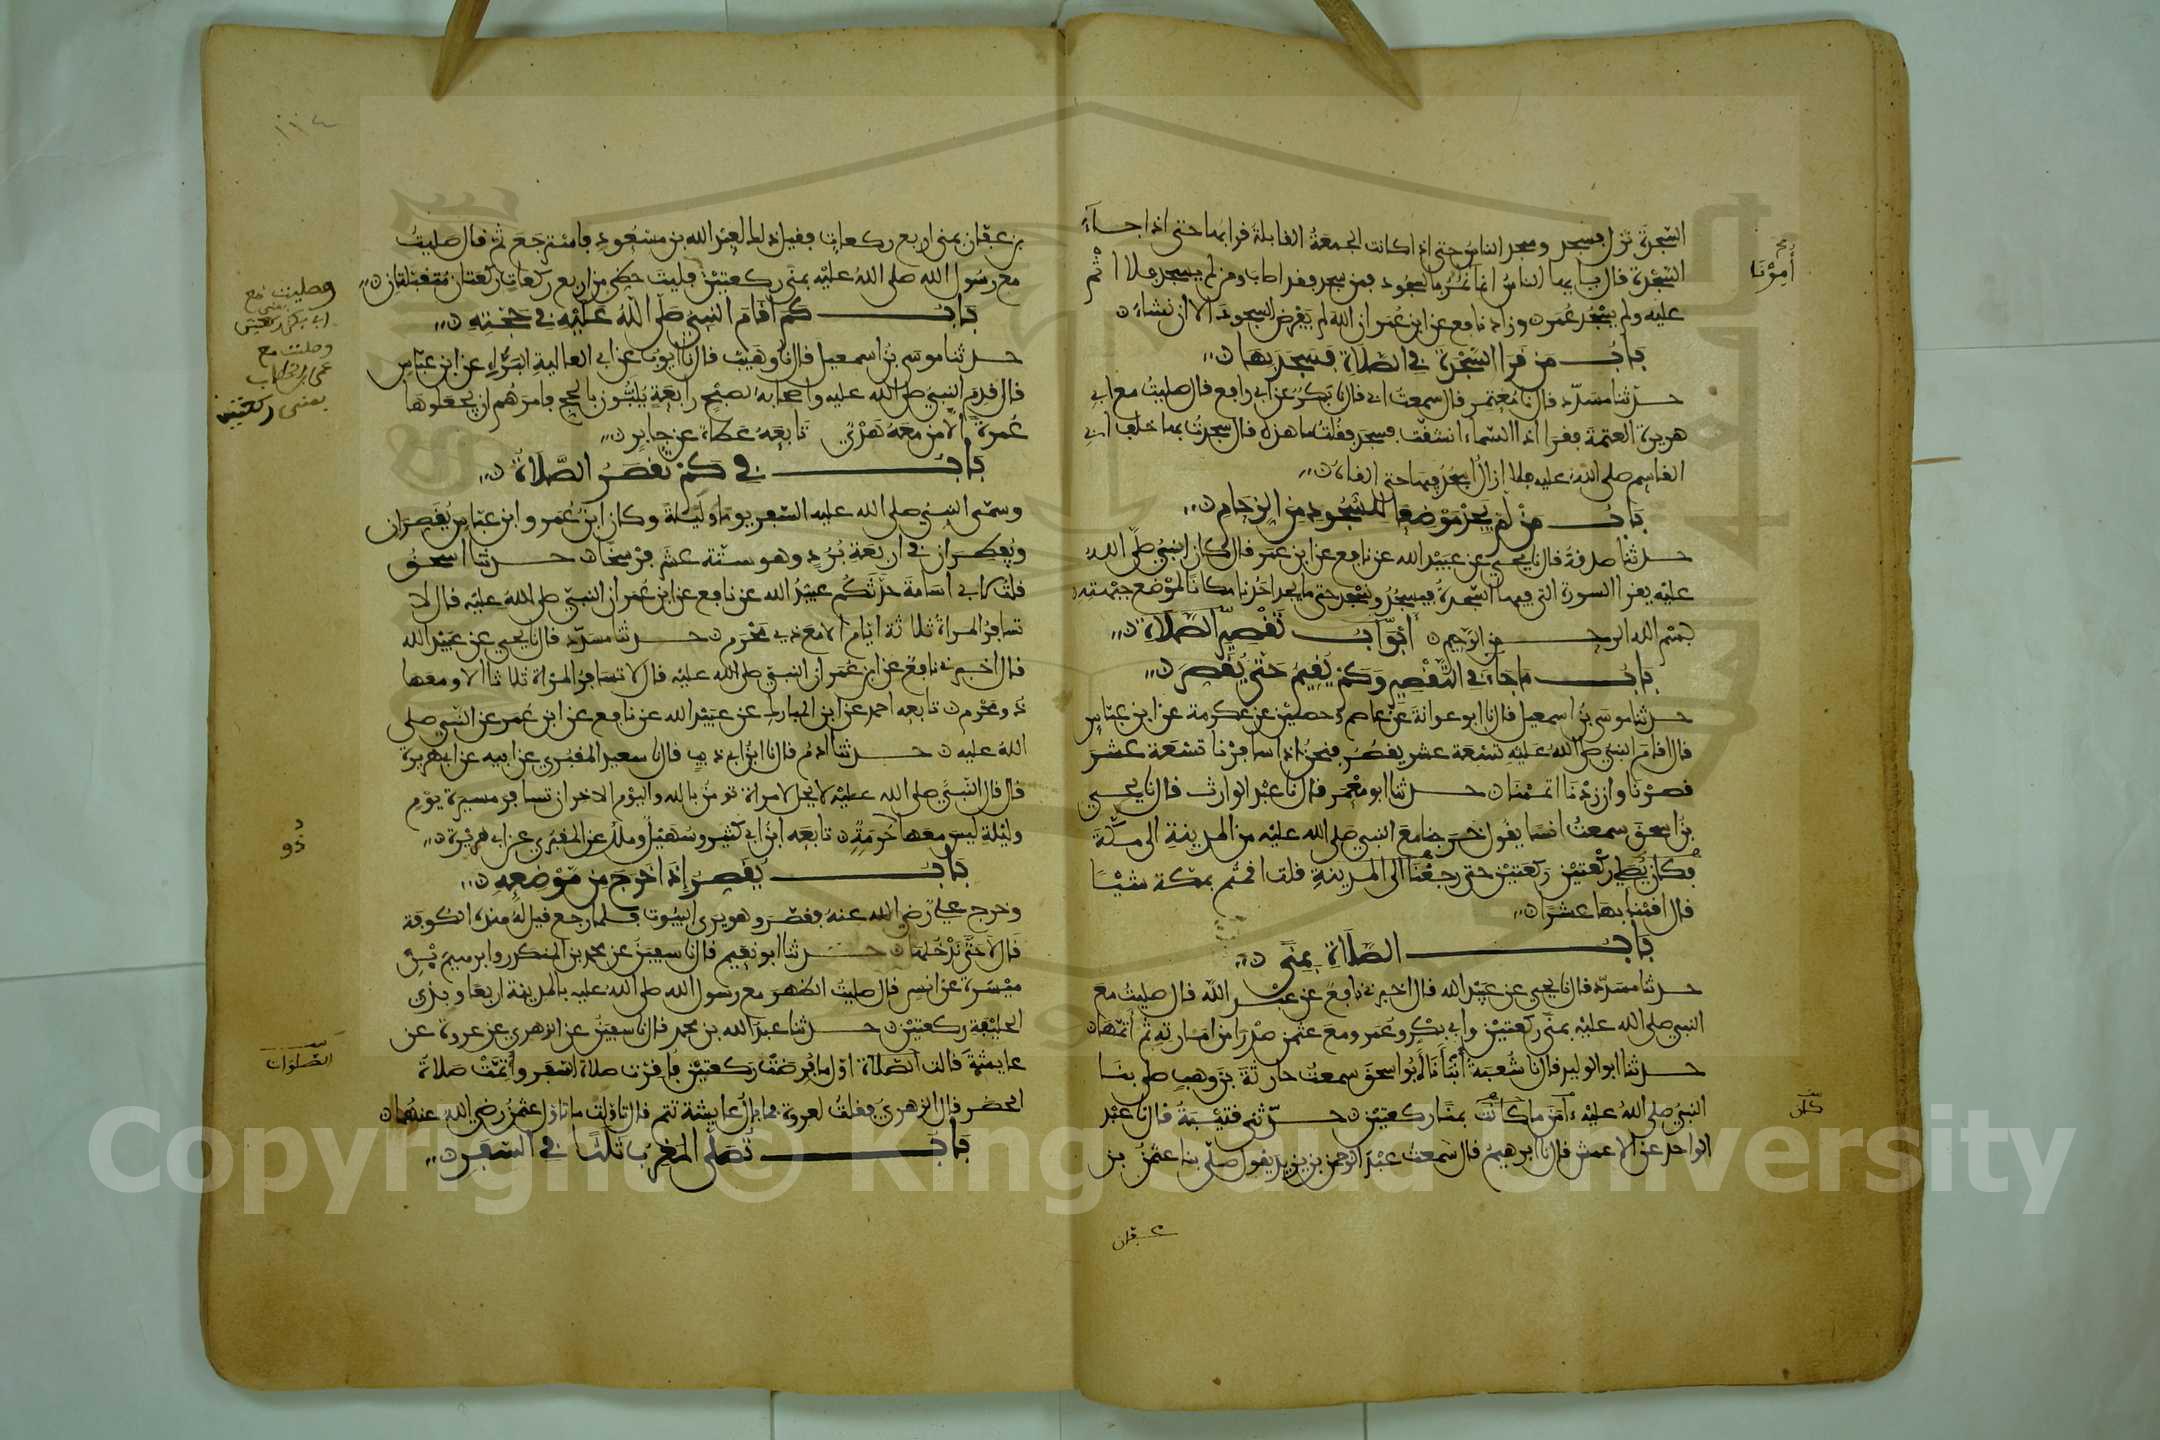 السجدة نزل فسجد وسجد الناس حتى اذا كانت الجمعة القابلة قرا بها حتى اذا جاء
السجدة قال يا يها الناس انما نمر بالسجود فمن سجد فقد اصاب ومن لم يسجد فلا اثم
عليه ولم يسجد عمر وزاد نافع عن ابن عمر ان الله لم يفرض السجود الا ان نشاء
باب من قرا السجدة في الصلاة فسجد بها
حدثنا مسدد قال نا معتمر قال سمعت ابي قال نا بكر عن ابي رافع قال صليت مع ابي
هريرة العتمة فقرا اذا السماء انشقت فسجد فقلت ما هذه قال سجدت بها خلف ابي
القاسم صلى الله عليه فلا ازال اسجد فيها حتى القاه
باب من لم يجد موضعا للسجود من الزحام
حدثنا صدقة قال نا يحيى عن عبيد الله عن نافع عن ابن عمر قال كان النبي صلى الله
عليه يقرا السورة التي فيها السجدة فيسجد ونسجد حتى ما يجد احدنا مكانا لموضع جبهته
بسم الله الرحمن الرحيم ابواب تقصير الصلاة
باب ما جاء في التقصير وكم يقيم حتى يقصر
حدثنا موسى بن اسمعيل قال نا ابو عوانة عن عاصم وحصين عن عكرمة عن ابن عباس
قال اقام النبي صلى الله عليه تسعة عشر يقصر فنحن اذا سافرنا تسعة عشر
قصرنا وان زدنا اتممنا حدثنا ابو معمر قال نا عبد الوارث قال نا يحيى
بن اسحق سمعت انسا يقول خرجنا مع النبي صلى الله عليه من المدينة الى مكة
فكان يصلي ركعتين ركعتين حتى رجعنا الى المدينة قلت اقمتم بمكة شيئا
قال اقمنا بها عشرا
باب الصلاة بمنى
حدثنا مسدد قال نا يحيى عن عبيد الله قال اخبرني نافع عن عبد الله قال صليت مع
النبي صلى الله عليه بمنى ركعتين وابي بكر وعمر ومع عثمن صدرا من امارته ثم اتمها
حدثنا ابو الوليد قال نا شعبة انبانا ابو اسحق سمعت حارثة بن وهب صلى بنا
النبي صلى الله عليه ءامن ما كانت بمنا ركعتين حدثني قتيبة قال نا عبد
الواحد عن الاعمش قال نا ابرهيم قال سمعت عبد الرحمن بن يزيد يقول صلى بنا عثمن بن
عفان
امرنا
كان
١١٤
بن عفان بمنى اربع ركعات فقيل ذلك لعبد الله بن مسعود فاسترجع ثم قال صليت
مع رسول الله صلى الله عليه بمنى ركعتين فليت حظي من اربع ركعات ركعتان متقبلتان
باب كم اقام النبي صلى الله عليه في حجته
حدثنا موسى بن اسمعيل قال نا وهيب قال نا ايوب عن ابي العالية البراء عن ابن عباس
قال قدم النبي صلى الله عليه واصحابه لصبح رابعة يلبون بالحج فامرهم ان يجعلوها
عمرة الا من معه هدي تابعه عطاء عن جابر
باب في كم تقصر الصلاة
وسمى النبي صلى الله عليه السفر يوما وليلة وكان ابن عمر وابن عباس يقصران
ويفطران في اربعة برد وهو ستة عشر فرسخا حدثنا اسحق
قلت لابي اسامة حدثكم عبيد الله عن نافع عن ابن عمر ان النبي صلى الله عليه قال لا
تسافر المراة ثلاثة ايام الا مع ذي محرم حدثنا مسدد قال نا يحيى عن عبيد الله
قال اخبرني نافع عن ابن عمر ان النبي صلى الله عليه قال لا تسافر المراة ثلاثا الا ومعها
ذو محرم تابعه احمد عن ابن المبارك عن عبيد الله عن نافع عن ابن عمر عن النبي صلى
الله عليه حدثنا ادم قال نا ابن ابي ذيب قال نا سعيد المقبري عن ابيه عن ابي هريرة
قال قال النبي صلى الله عليه لا يحل لامراة تومن بالله واليوم الاخر ان تسافر مسيرة يوم
وليلة ليس معها حرمة تابعه ابن ابي كثير وسهيل وملك عن المقبري عن ابي هريرة
باب يقصر اذا خرج من موضعه
وخرج علي رضي الله عنه فقصر وهو يرى البيوت فلما رجع قيل له هذه الكوفة
قال لا حتى ندخلها حدثنا ابو نعيم قال نا سفين عن محمد بن المنكدر وابرهيم بن
ميسرة عن انس قال صليت الظهر مع رسول الله صلى الله عليه بالمدينة اربعا وبذي
الحليفة ركعتين حدثنا عبد الله بن محمد قال نا سفين عن الزهري عن عروة عن
عايشة قالت الصلاة اول ما فرضت ركعتين فاقرت صلاة السفر واتمت صلاة
الحضر قال الزهري فقلت لعروة فما بال عايشة تتم قال تاولت ما تاول عثمن رضي الله عنهما
باب تصلى المغرب ثلثا في السفر
وصليت مع
ابي بكر بمنى ركعتين
وصليت مع
عمر بن الخطاب
بمنى ركعتين
ذو
الصلوات
Copyright © King Saud University